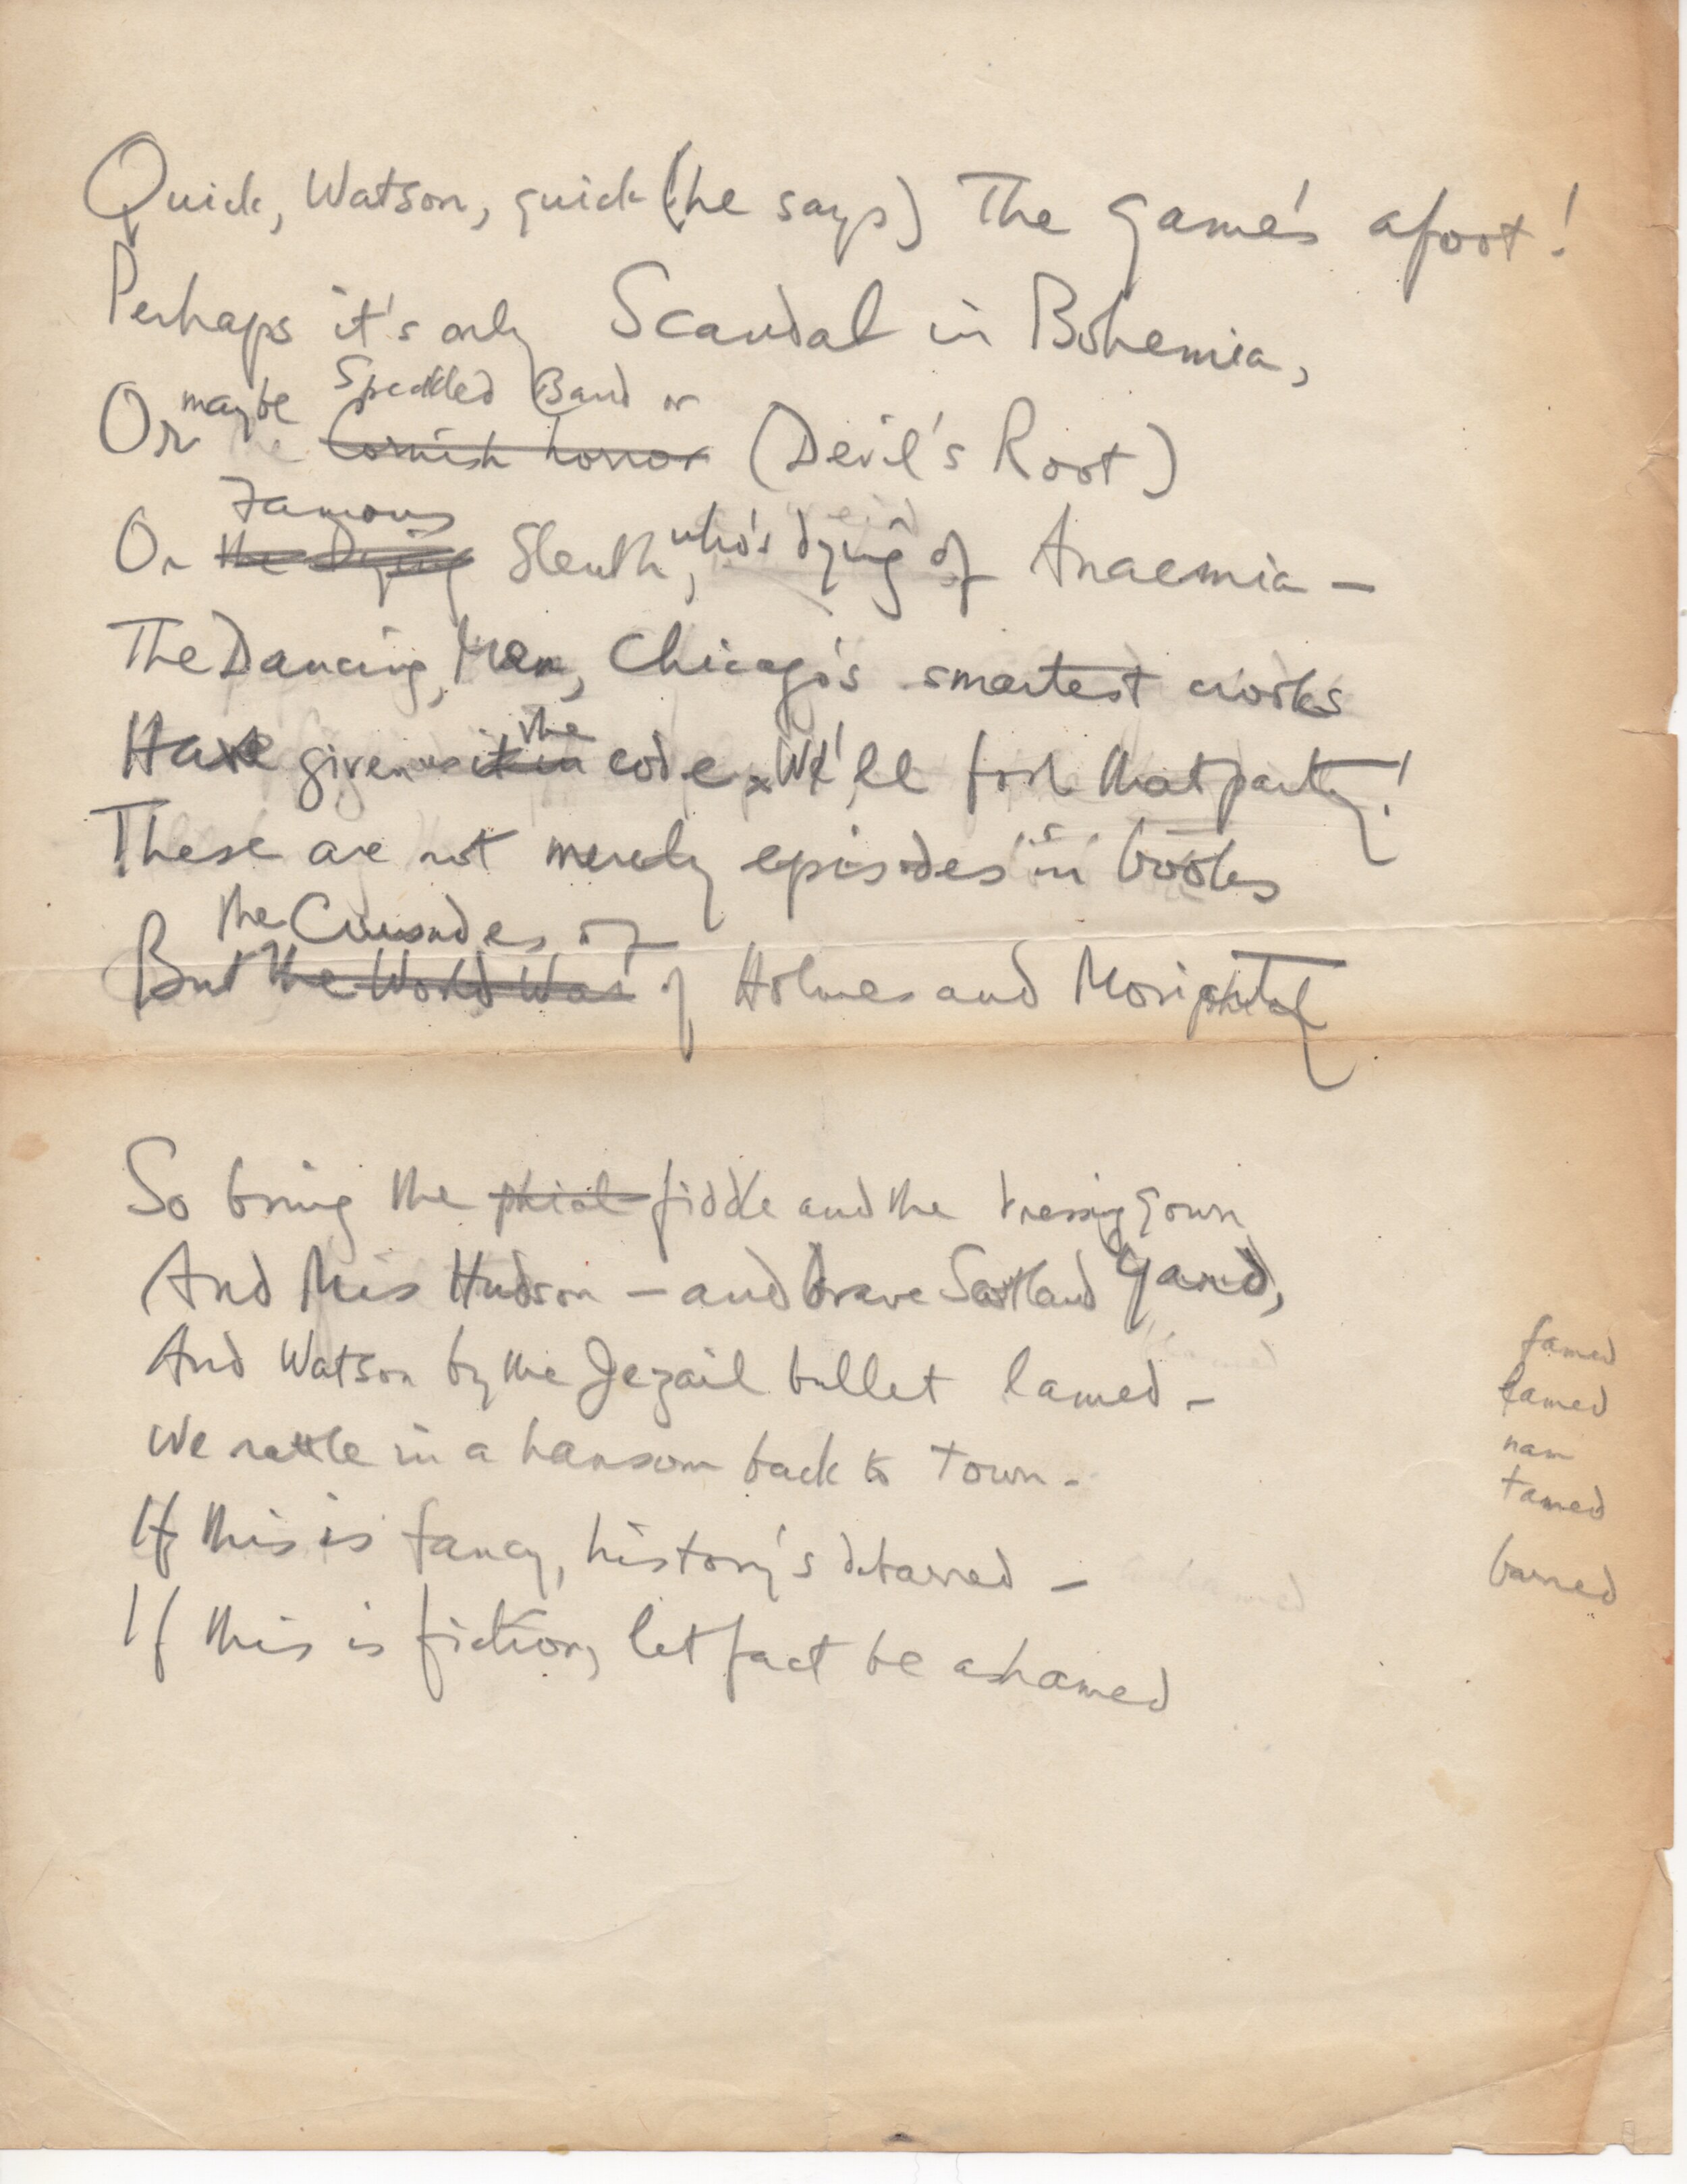 Quick, Watson, quick (he says) The game's afoot!
Perhaps it's only Scandal in Bohemia,
maybe Speckled Band or
Or the Cornish horror (Devil's Root)
Famous
Or the Dying Sleuth, who's dying of Anaemia —
The Dancing Men, Chicago's smartest crooks
the
Have given us it in code. We'll foil that party!
These are not merely episodes in books
the Crusades of
But the World War of Holmes and Moriarty
So bring the phial fiddle and the dressing gown
And Mrs Hudson — and brave Scotland Yard,
And Watson by the Jezail bullet lamed —
We rattle in a hansom back to town —
If this is fancy, history's debarred —
If this is fiction, let fact be ashamed
famed
lamed
nam
tamed
barred